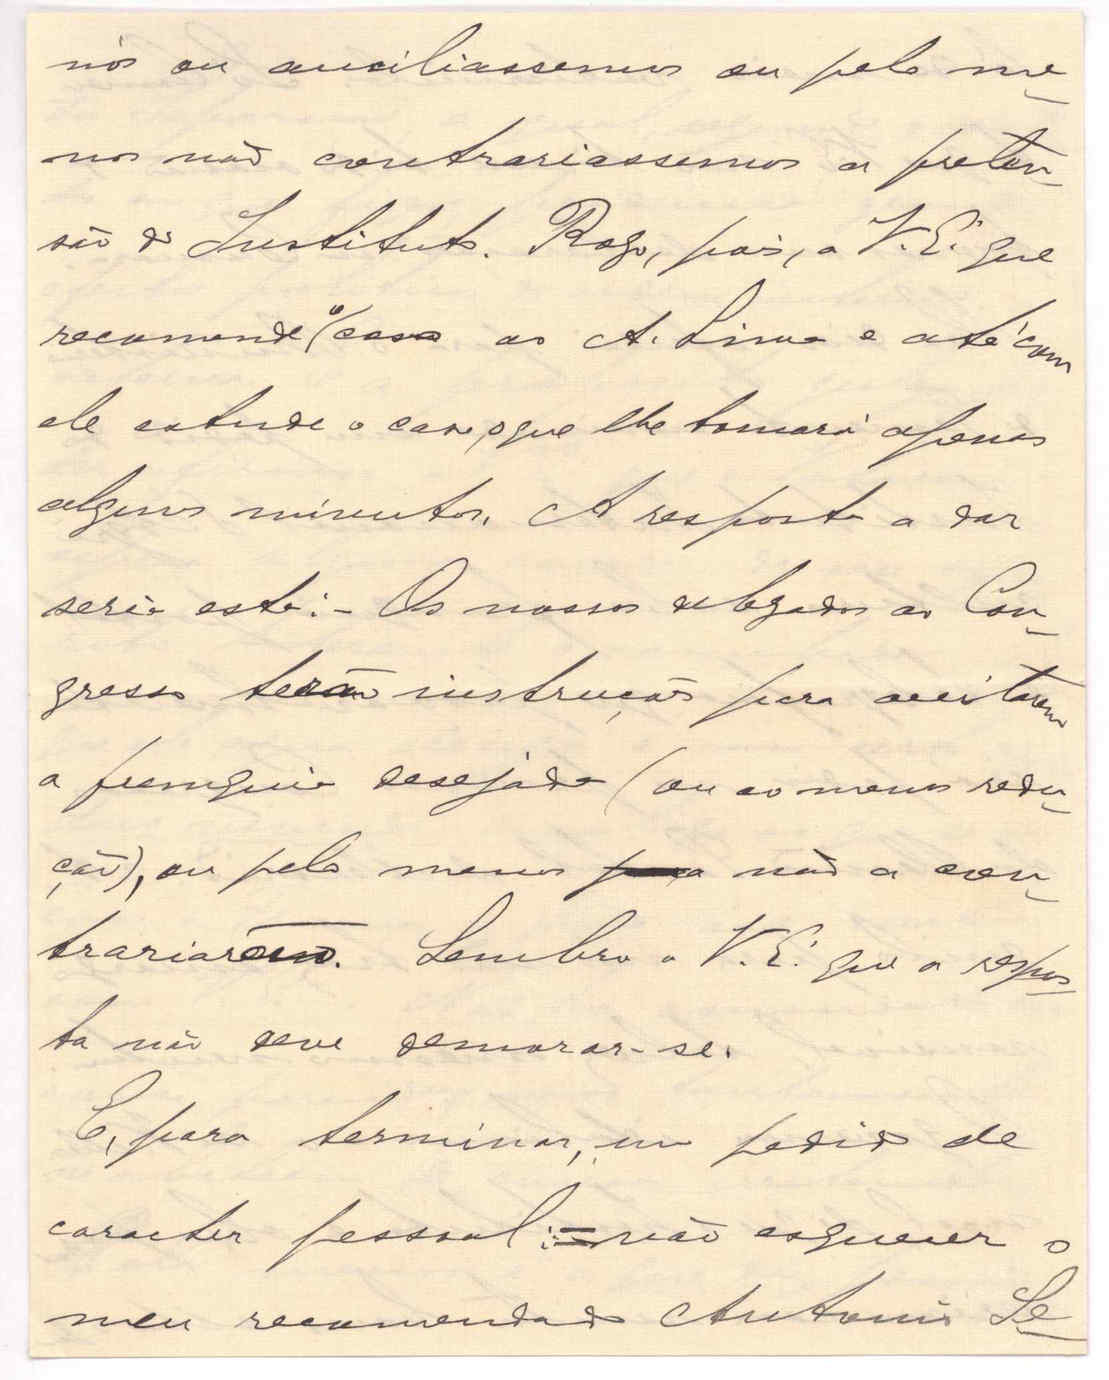 nós ou auxiliassemos ou pelo me-
nos não contrariassemos a preten-
são do Instituto. Rogo, pois, a V. E.ª que
recomende o caso ao A. Lima e até com
ele estude o caso, o que lhe tomará apenas
alguns minutos. A resposta a dar
seria esta: - Os nossos delegados ao Con-
gresso terão instruções para aceitarem
a franquia desejada (ou ao menos redu-
ção), ou pelo menos não a con-
trariarem. Lembro a V. E.ª que a respos-
ta não deve demorar-se.
E, para terminar, um pedido de
caracter pessoal: = não esquecer o
meu recomendado Antonio Se-